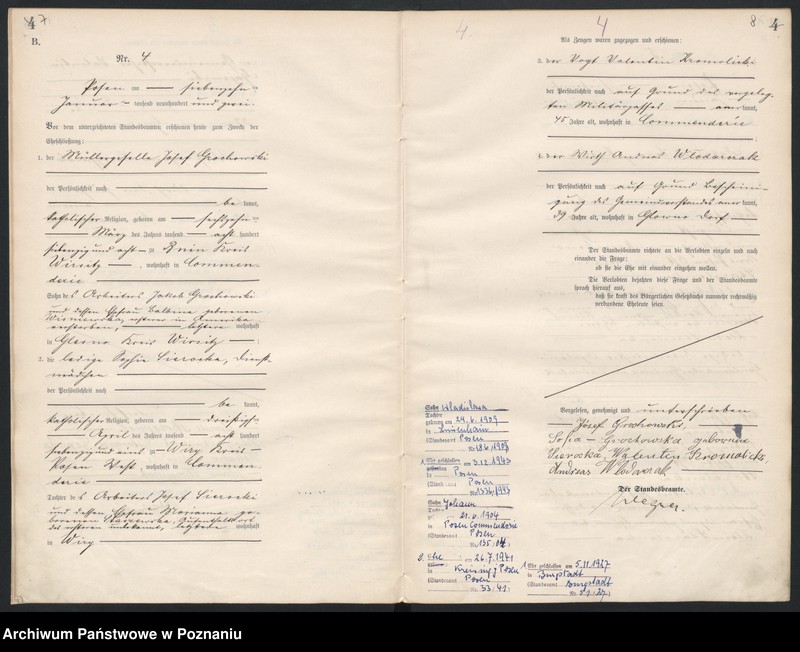 4 7
B.
Nr. 4
Posen am — siebenzehn-
Januar — tausend neunhundert und zwei.
Vor dem unterzeichneten Standesbeamten erschienen heute zum Zweck der
Eheschließung:
1. der Müllergeselle Josef Grochowski
der Persönlichkeit nach
be kannt,
katholischer Religion, geboren am — sechzehn-
März des Jahres tausend — acht hundert
siebenzig und acht — zu Znin Kreis
Wirsitz —, wohnhaft in Commen-
derie
Sohn des Arbeiters Jakob Grochowski
und dessen Ehefrau Balbina geborenen
Wisniewska, ersterer in Amerika
verstorben, letztere wohnhaft
in Glesno Kreis Wirsitz
2. die ledige Sophie Sieroćka, Dienst-
mädchen
der Persönlichkeit nach
be kannt,
katholischer Religion, geboren am — dreißig-
April des Jahres tausend — acht hundert
siebenzig und eins zu Wiry Kreis
Posen West, wohnhaft in Commen-
derie
Tochter des Arbeiters Josef Sierocki
und dessen Ehefrau Marianna ge-
borenen Aufenthaltsort
des ersteren unbekannt, letztere wohnhaft
in Wiry
4.
4
8 4
Als Zeugen waren zugezogen und erschienen:
3. der Vogt Valentin Kromolicki
der Persönlichkeit nach auf Grund des vorgeleg-
ten Militärpasses anerkannt,
45 Jahre alt, wohnhaft in Commenderie
4. der Wirth Andreas Wlodarczak
der Persönlichkeit nach auf Grund Bescheini-
gung des Gemeindevorstandes anerkannt,
39 Jahre alt, wohnhaft in Glowno Dorf
Der Standesbeamte richtete an die Verlobten einzeln und nach
einander die Frage:
ob sie die Ehe mit einander eingehen wollen.
Die Verlobten bejahten diese Frage und der Standesbeamte
sprach hierauf aus,
daß sie kraft des Bürgerlichen Gesetzbuchs nunmehr rechtmäßig
verbundene Eheleute seien.
Vorgelesen, genehmigt und unterschrieben
Józef Grochowski
Sofia Grochowska geborene
Sierocka, Walenten Kromolicki,
Andreas Wlodarczak
Der Standesbeamte.
Sohn Wladislawa
Tochter
geboren am 24.6.1909
in
(Standesamt Posen
Nr.
1 Ehe geschlossen am 3.12.1943
in Posen
(Standesamt Posen
Nr. 1536/1943
Sohn Johann
Tochter
21.6.1904
in Posen Commenderie
(Standesamt Posen
Nr. 135/04)
2 Ehe am 26.7.1941
in Kreising, Posen
(Standesamt Posen
Nr. 33/41)
1 Ehe geschlossen am 5.11.1927
in Burgstädt
(Standesamt Burgstädt
Nr. 51/27)
Archiwum Państwowe w Poznaniu